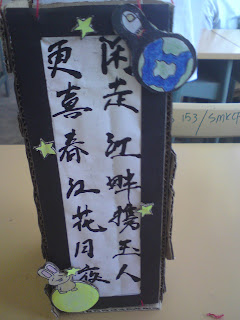 闲走江畔携玉人
更真春江花月夜
153/SMKCF